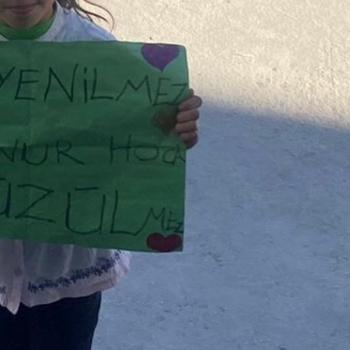 YENİLMEZ
NUR HOCA
ÜZÜLMEZ